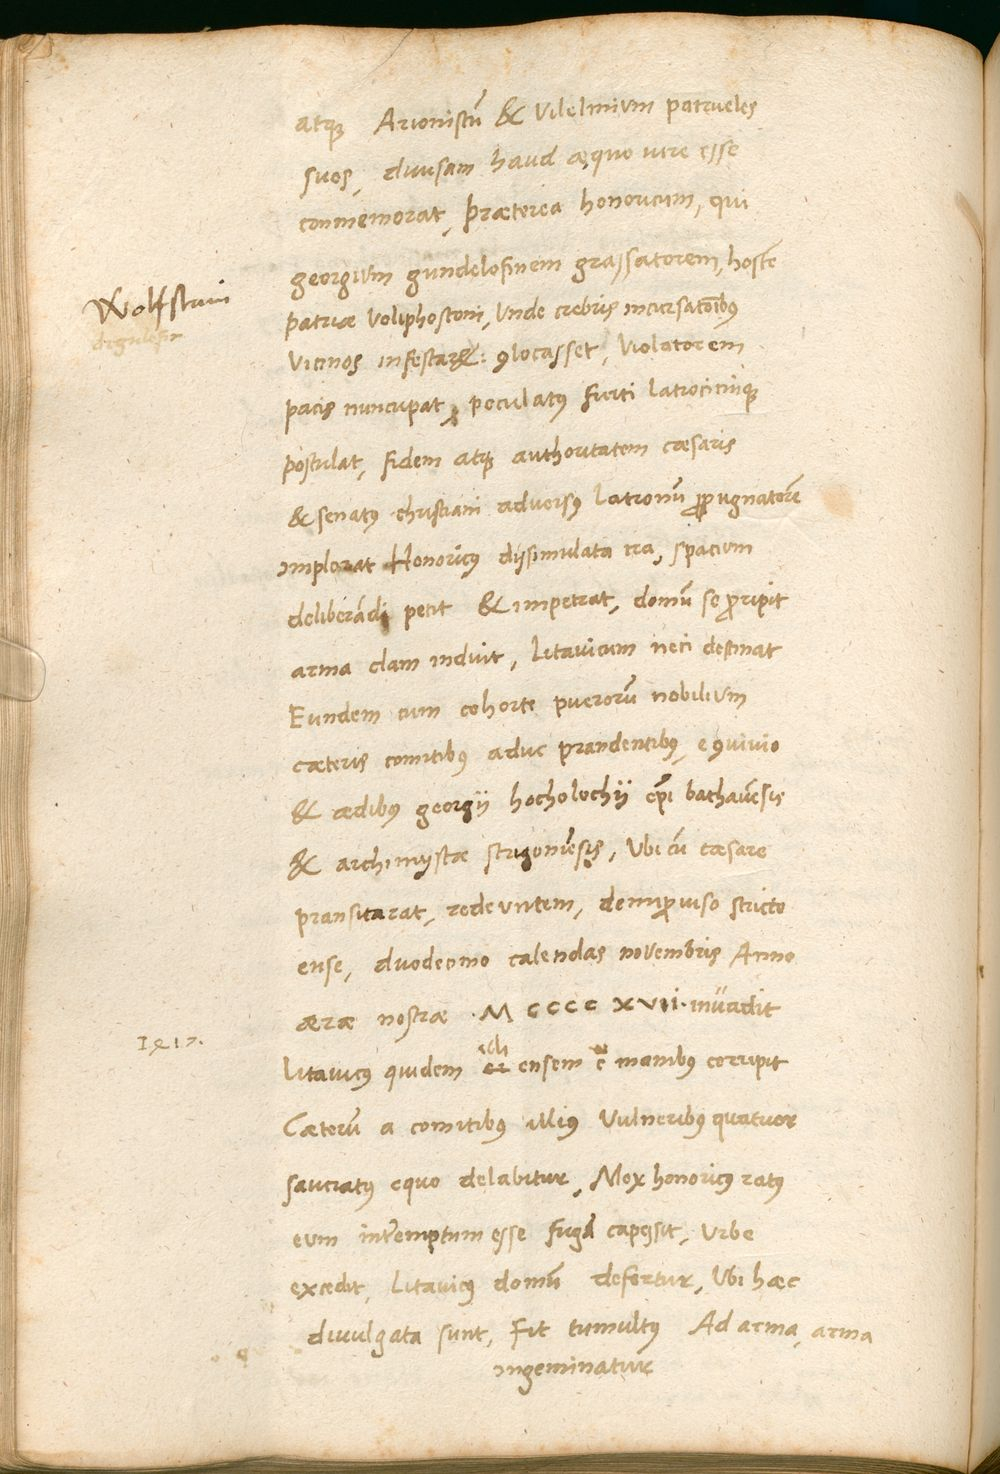 atq; Arionistū & Vilelmium patrueles
suos, diuisam haud æquo iure esse
conmemorat, præterea honoricum, qui
georgium gundelofinem grassatorem, hostē
Wolfstain
patriæ Voliphostoni, Vnde crebris incursatōibꝰ
Vicinos infestaret: ꝯlocasset, Violatorem
pacis nuncupat, peculatꝰ furti latrociniiq;
postulat, fidem atq; authoritatem cæsaris
& senatꝰ christiani aduersꝰ latronū ꝓpugnatorē
implorat Honoricꝰ dissimulata ira, spacium
deliberādi petit & impetrat, domū se ꝓripit
arma clam induit, Litauicum neci destinat
Eundem cum cohorte puerorū nobilium
cæteris comitibꝰ aduc prandentibꝰ, e ꝯuiuio
& ædibꝰ georgij hocholochij ep̄i bathauēsis
& archimystæ strigoniēsis, Vbi cū cæsare
pransitarat, redeuntem, de improuiso stricto
ense, duodecimo calendas novembris Anno
æræ nostræ .M CCCC XVII. inuadit
1417.
Litauicꝰ quidem ei ensem e manibꝰ corripit
Cæterū a comitibꝰ illiꝰ Vulneribꝰ quatuor
sauciatꝰ equo delabitur, Mox honoricꝰ ratꝰ
eum interemptum esse fugā capessit, Vrbe
excedit, Litauicꝰ domū defertur, Vbi hæc
diuulgata sunt, Fit tumultꝰ Ad arma, arma
ingeminatur